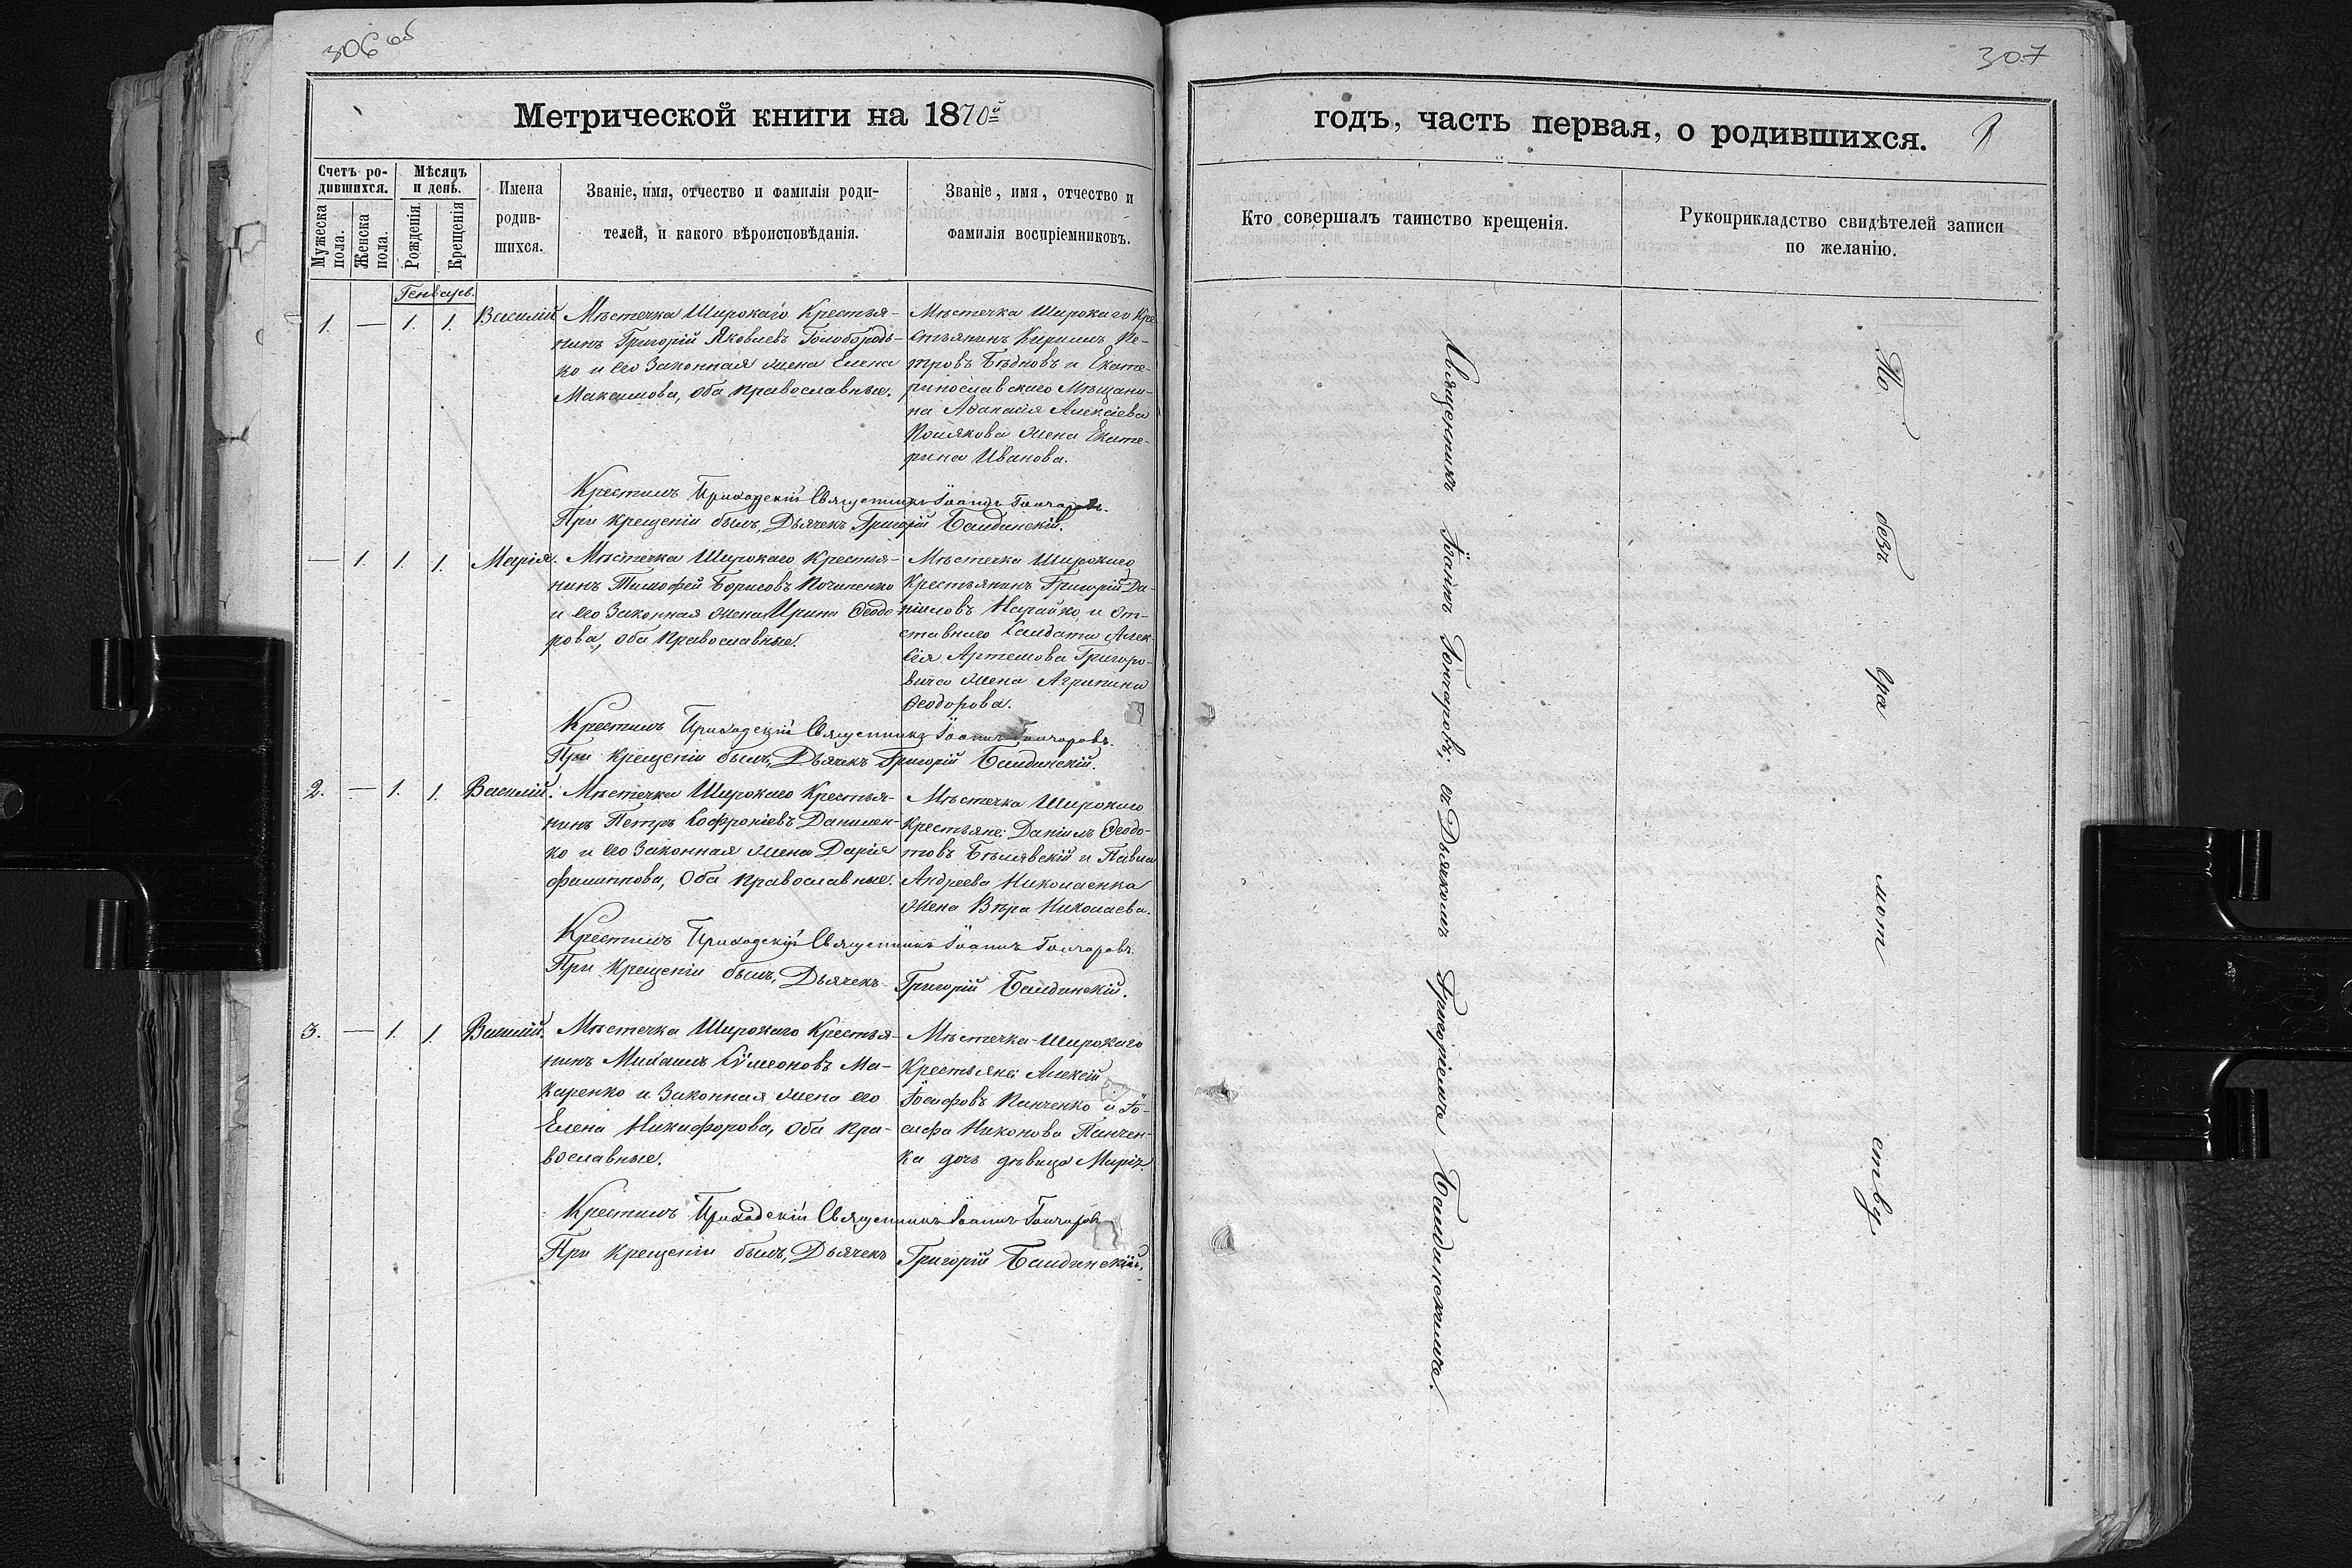 306 об
Метрической книги на 1870й
Счетъ ро-
дившихся.
Мужеска
пола.
Женска
пола.
Мѣсяцъ
и день.
Рожденія.
Крещенія
Имена
родив-
шихся.
Званіе, имя, отчество и фамилія роди-
телей, и какого вѣроисповѣданія.
Званіе, имя, отчество и
фамилія воспріемниковъ.
Генварь.
1. — 1. 1. Василій
Мѣстечка Широкаго Крестья-
нинъ Григорій Яковлевъ Голобородь-
ко и его Законная жена Елена
Максимова, оба православные.
Мѣстечка Широкаго Кре-
стьянинъ Кириллъ Пе-
тровъ Бѣдновъ и Екате-
ринославскаго Мѣщани-
на Аѳанасія Алексіева
Полякова жена Екате-
рина Иванова.
Крестилъ Приходскій Священникъ Іоаннъ Гончаровъ.
При крещеніи былъ, Дьячекъ Григорій Балдинскій.
— 1. 1. 1. Марія.
Мѣстечка Широкаго Крестья-
нинъ Тимофей Борисовъ Починенко
и его Законная жена Ирина Ѳеодо-
рова, оба Православные.
Мѣстечка Широкаго
Крестьянинъ Григорій Да-
ніиловъ Нарайко и от-
ставнаго Салдата Алек-
сія Артемова Григоро-
вича жена Агрипина
Ѳеодорова.
Крестилъ Приходскій Священникъ Іоаннъ Гончаровъ.
При Крещеніи былъ, Дьячекъ Григорій Балдинскій.
2. — 1. 1. Василій.
Мѣстечка Широкаго Крестья-
нинъ Петръ Софроніевъ Данилен-
ко и его Законная жена Дарія
Филиппова, Оба православные.
Мѣстечка Широкаго
Крестьяне: Даніилъ Ѳеодо-
товъ Бѣлявскій и Павла
Андреева Николаенка
жена Вѣра Николаева.
Крестилъ Приходскій Священникъ Іоаннъ Гончаровъ.
При Крещеніи былъ, Дьячекъ Григорій Балдинскій.
3. — 1. 1. Василій.
Мѣстечка Широкаго Крестья-
нинъ Михаилъ Сѵмеоновъ Ма-
каренко и Законная жена его
Елена Никифорова, Оба пра-
вославные.
Мѣстечка Широкаго
Крестьяне: Алексій
Іосифовъ Панченко и Іо-
сифа Никонова Панчен-
ка дочь дѣвица Марія.
Крестилъ Приходскій Священникъ Іоаннъ Гончаровъ
При крещеніи былъ, Дьячекъ Григорій Балдинскій.
307
годъ, часть первая, о родившихся. 1
Кто совершалъ таинство крещенія.
Рукоприкладство свидѣтелей записи
по желанію.
Священникъ Іоаннъ Гончаровъ; съ Дьячкомъ Григоріемъ Балдинскимъ.
По без гра мот ству.